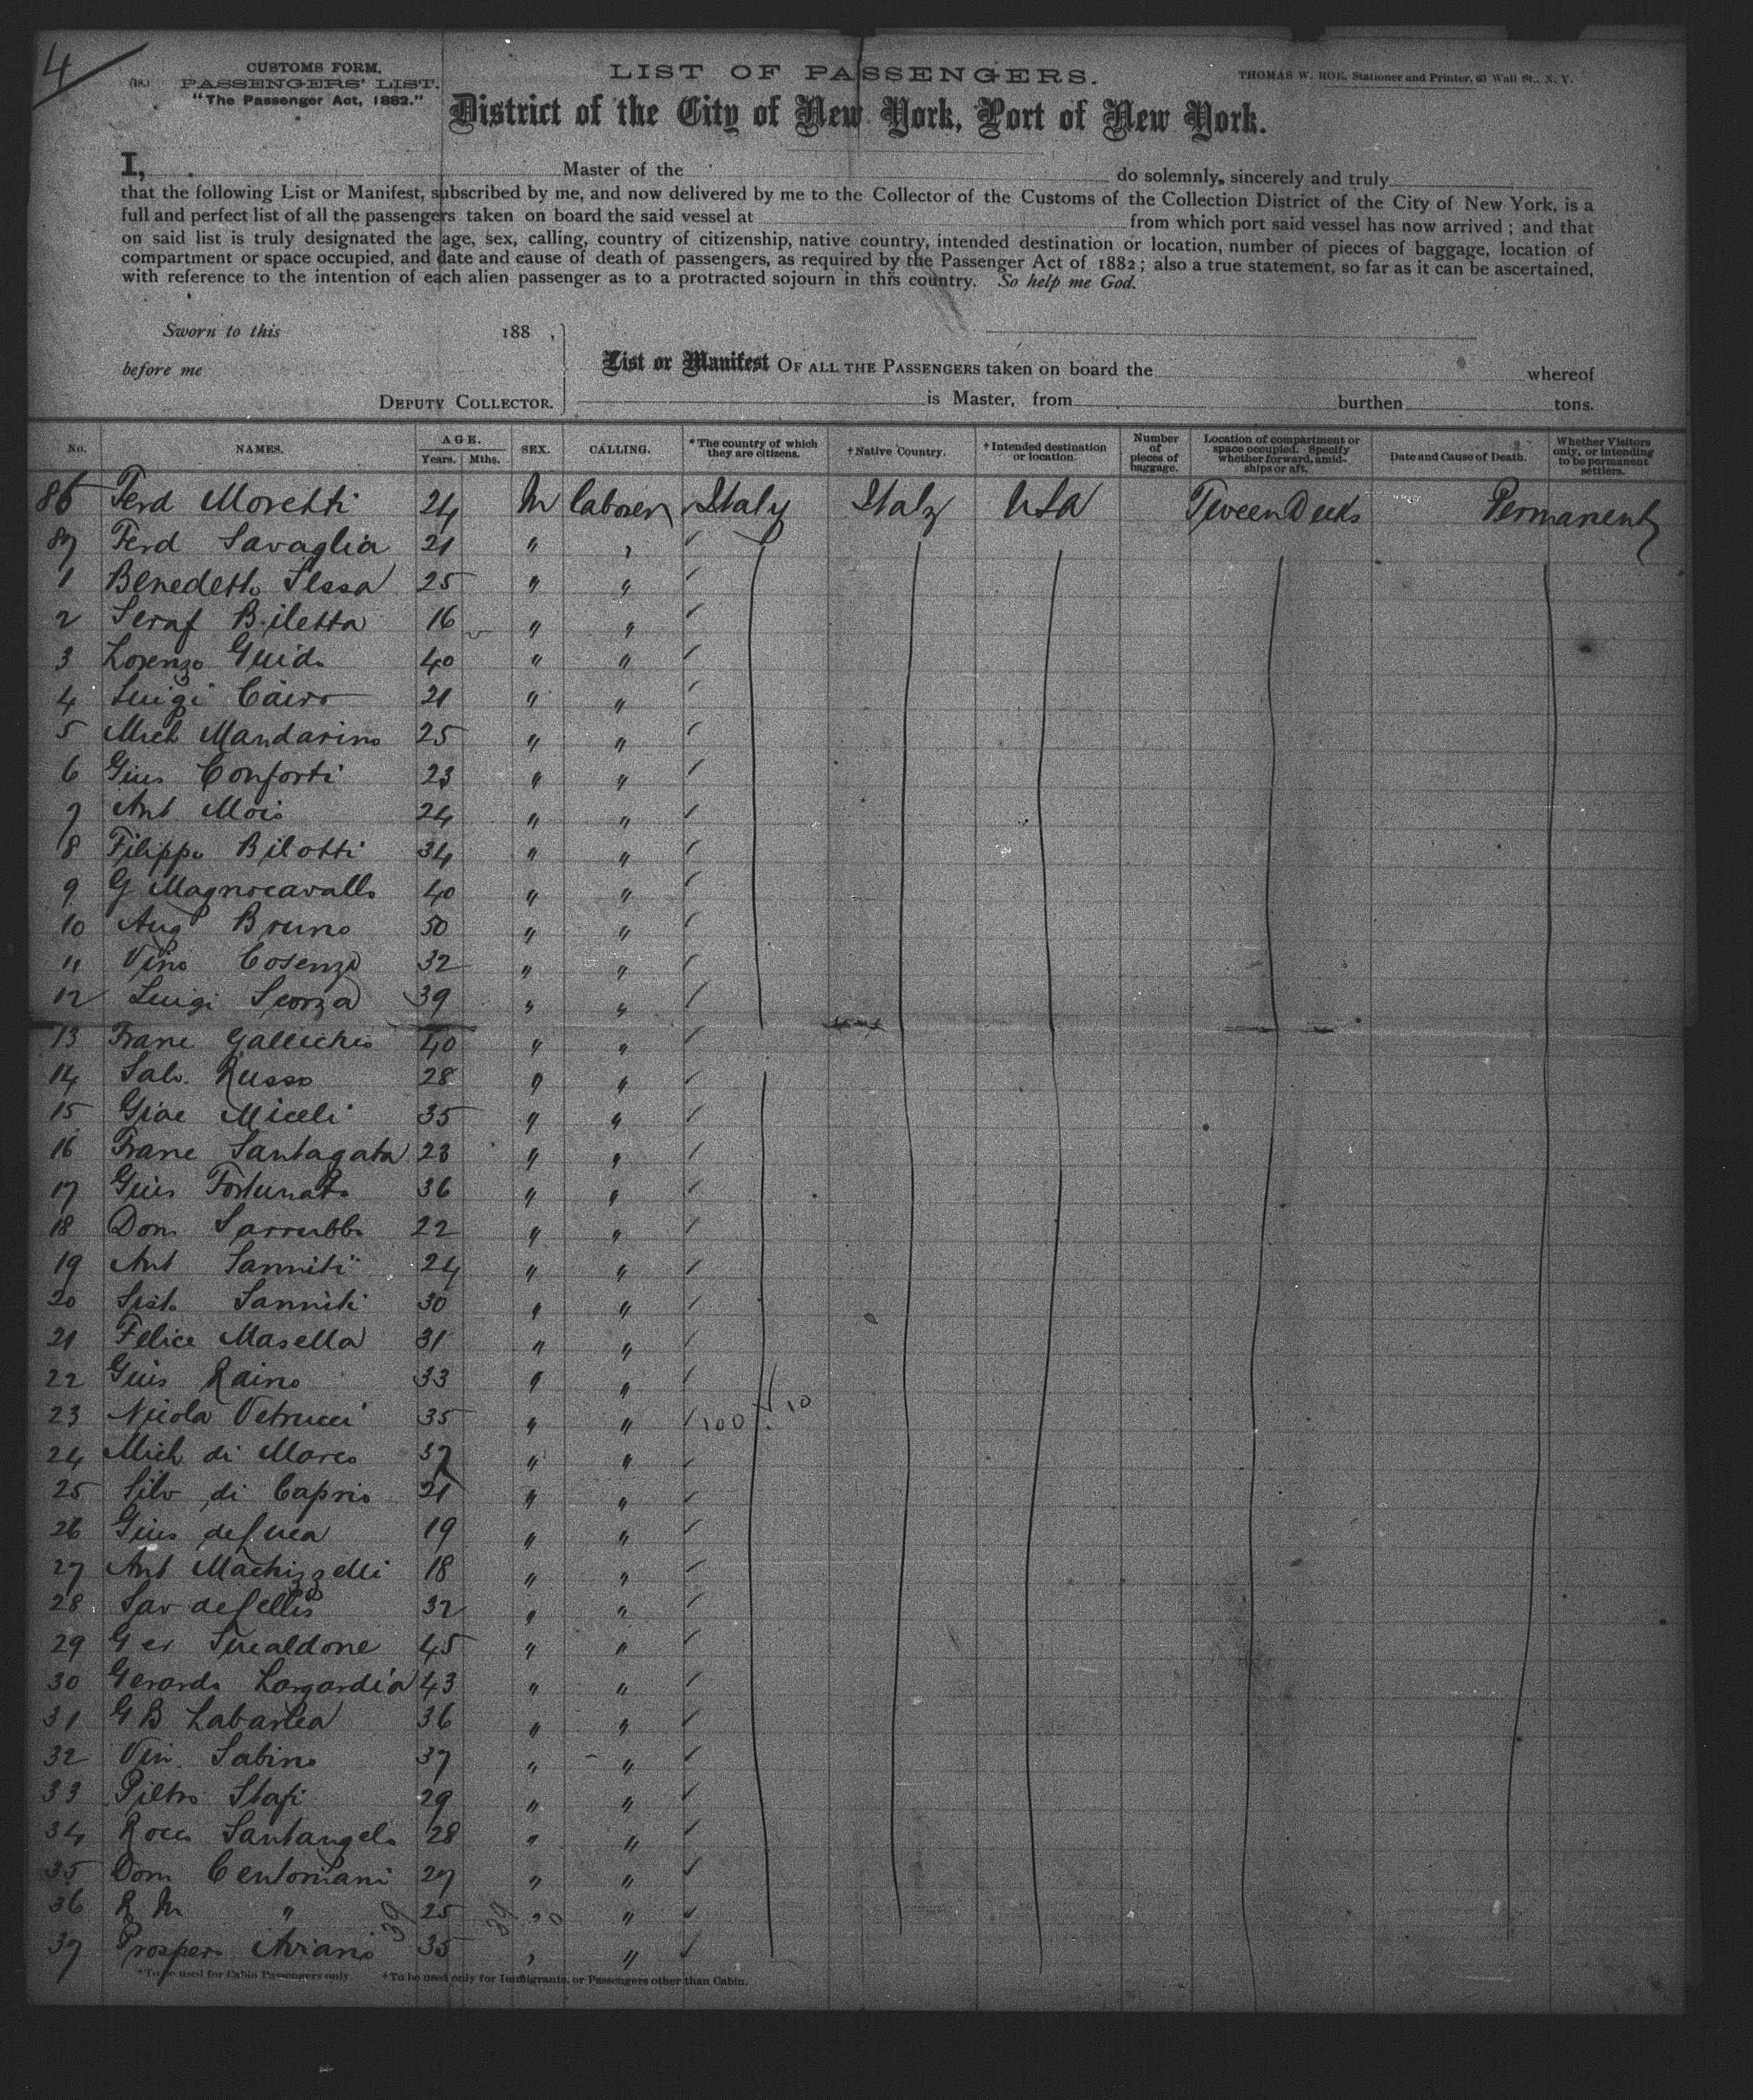 4
(18.)
CUSTOMS FORM,
PASSENGERS' LIST.
"The Passenger Act, 1882."
LIST OF PASSENGERS.
THOMAS W. ROE, Stationer and Printer, 63 Wall St., N. Y.
District of the City of New York, Port of New York.
I, Master of the do solemnly, sincerely and truly
that the following List or Manifest, subscribed by me, and now delivered by me to the Collector of the Customs of the Collection District of the City of New York, is a
full and perfect list of all the passengers taken on board the said vessel at from which port said vessel has now arrived ; and that
on said list is truly designated the age, sex, calling, country of citizenship, native country, intended destination or location, number of pieces of baggage, location of
compartment or space occupied, and date and cause of death of passengers, as required by the Passenger Act of 1882 ; also a true statement, so far as it can be ascertained,
with reference to the intention of each alien passenger as to a protracted sojourn in this country. So help me God.
Sworn to this 188 ,
before me
DEPUTY COLLECTOR.
List or Manifest OF ALL THE PASSENGERS taken on board the whereof
is Master, from burthen tons.
No. NAMES. AGE. Years. Mths. SEX. CALLING. *The country of which they are citizens. †Native Country. †Intended destination or location. Number of pieces of baggage. Location of compartment or space occupied. Specify whether forward, amidships or aft. Date and Cause of Death. Whether Visitors only, or intending to be permanent settlers.
86 Ferd Moretti 24 M laborer Italy Italy USA TweenDecks Permanent
87 Ferd Savaglia 21 " "
1 Benedetto Sessa 25 " "
2 Seraf Biletta 16 " "
3 Lorenzo Guido 40 " "
4 Luigi Cairo 21 " "
5 Mich Mandarino 25 " "
6 Gius Conforti 23 " "
7 Ant Mois 24 " "
8 Filippo Bilotti 34 " "
9 G Magnocavallo 40 " "
10 Aug Bruno 50 " "
11 Vino Cosenza 32 " "
12 Luigi Scorza 39 " "
13 Franc Gallichio 40 " "
14 Salv. Russo 28 " "
15 Giac Miceli 35 " "
16 Franc Santagata 23 " "
17 Gius Fortunato 36 " "
18 Dom Sarrubbi 22 " "
19 Ant Sanniti 24 " "
20 Sisto Sanniti 30 " "
21 Felice Masella 31 " "
22 Gius Raino 33 " "
23 Nicola Vetrucci 35 " " 100 10
24 Mich di Marco 37 " "
25 Silv di Caprio 21 " "
26 Gius deLuca 19 " "
27 Ant Machizzelli 18 " "
28 Sav deLellis 32 " "
29 Ger 45 " "
30 Gerardo Langardia 43 " "
31 G B Labanca 36 " "
32 Vin. Sabino 37 " "
33 Pietro Stafi 29 " "
34 Rocco Santangelo 28 " "
35 Dom Centomani 27 " "
36 R M " 25 " "
37 Prospero Aviano 35 " "
*To be used for Cabin Passengers only. †To be used only for Immigrants, or Passengers other than Cabin.